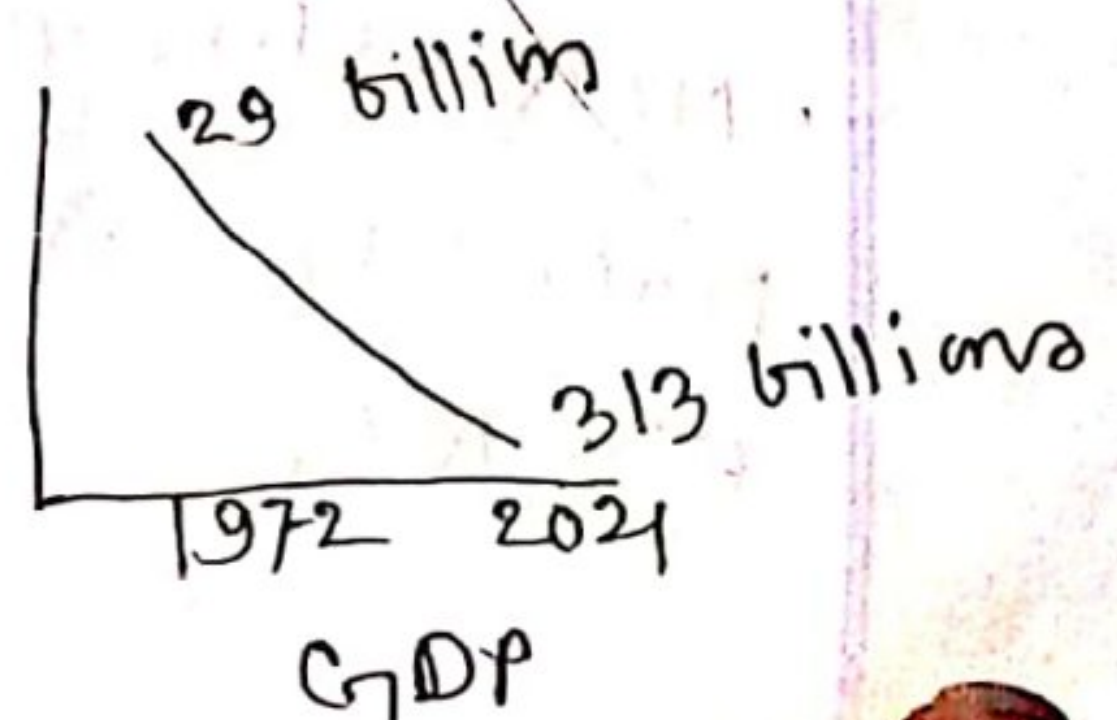 29 billion
313 billions
1972 2021
GDP